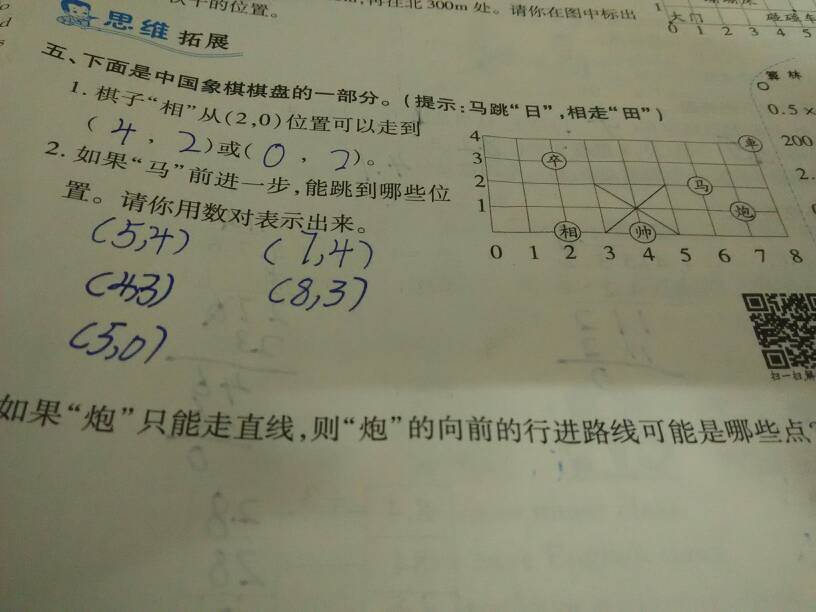 的位置。
再往北300m处。请你在图中标出
大门
碰碰车
0 1 2 3 4 5
思维拓展
五、下面是中国象棋棋盘的一部分。(提示:马跳“日”,相走“田”)
1. 棋子“相”从(2,0)位置可以走到
(4,2)或(0,2)。
2. 如果“马”前进一步,能跳到哪些位
置。请你用数对表示出来。
(5,4) (7,4)
(4,3) (8,3)
(5,0)
4
3
2
1
車
卒
马
炮
相
帅
0 1 2 3 4 5 6 7 8
0.5×
200
2.
扫一扫
如果“炮”只能走直线,则“炮”的向前的行进路线可能是哪些点?